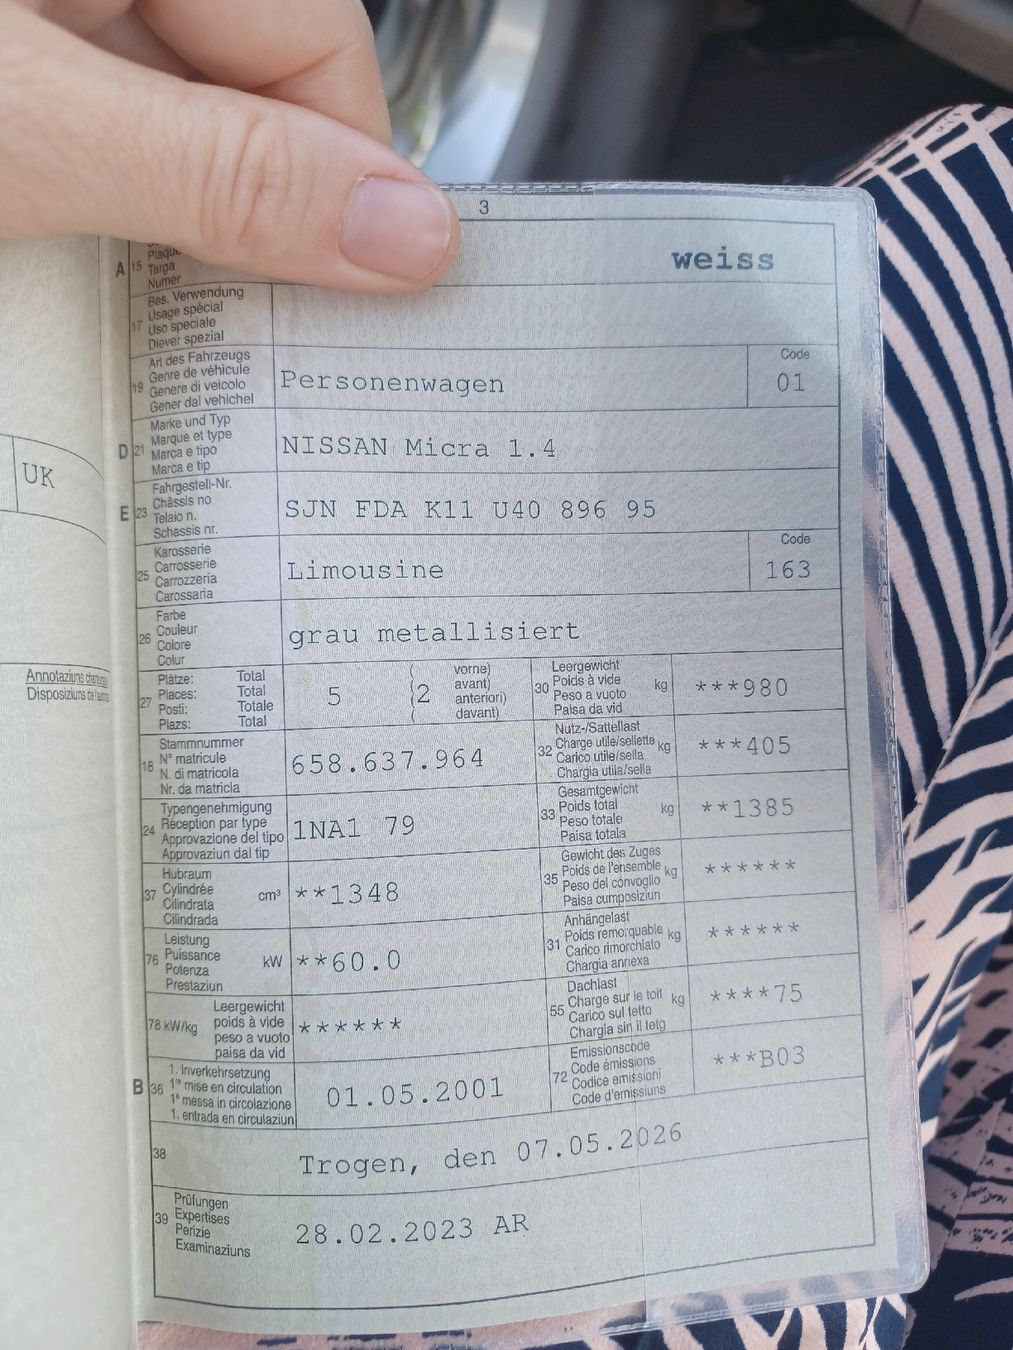 3
A 15 Plaque
Targa
Numer
weiss
17 Bes. Verwendung
Usage spécial
Uso speciale
Diever spezial
19 Art des Fahrzeugs
Genre de véhicule
Genere di veicolo
Gener dal vehichel
Personenwagen
Code
01
D 21 Marke und Typ
Marque et type
Marca e tipo
Marca e tip
NISSAN Micra 1.4
E 23 Fahrgestell-Nr.
Châssis no
Telaio n.
Schassis nr.
SJN FDA K11 U40 896 95
25 Karosserie
Carrosserie
Carrozzeria
Carossaria
Limousine
Code
163
26 Farbe
Couleur
Colore
Colur
grau metallisiert
27 Plätze: Total
Places: Total
Posti: Totale
Plazs: Total
5
( vorne)
(2 avant)
( anteriori)
( davant)
30 Leergewicht
Poids à vide
Peso a vuoto
Paisa da vid
kg
***980
18 Stammnummer
N° matricule
N. di matricola
Nr. da matricla
658.637.964
32 Nutz-/Sattellast
Charge utile/sellette
Carico utile/sella
Chargia utila/sella
kg
***405
24 Typengenehmigung
Réception par type
Approvazione del tipo
Approvaziun dal tip
1NA1 79
33 Gesamtgewicht
Poids total
Peso totale
Paisa totala
kg
**1385
37 Hubraum
Cylindrée
Cilindrata
Cilindrada
cm³
**1348
35 Gewicht des Zuges
Poids de l'ensemble
Peso del convoglio
Paisa cumposiziun
kg
******
76 Leistung
Puissance
Potenza
Prestaziun
kW
**60.0
31 Anhängelast
Poids remorquable
Carico rimorchiato
Chargia annexa
kg
******
78 kW/kg Leergewicht
poids à vide
peso a vuoto
paisa da vid
******
55 Dachlast
Charge sur le toit
Carico sul tetto
Chargia sin il tetg
kg
****75
B 36 1. Inverkehrsetzung
1re mise en circulation
1a messa in circolazione
1. entrada en circulaziun
01.05.2001
72 Emissionscode
Code émissions
Codice emissioni
Code d'emissiuns
***B03
38
Trogen, den 07.05.2026
39 Prüfungen
Expertises
Perizie
Examinaziuns
28.02.2023 AR
UK
Annotaziuns
Disposiziuns